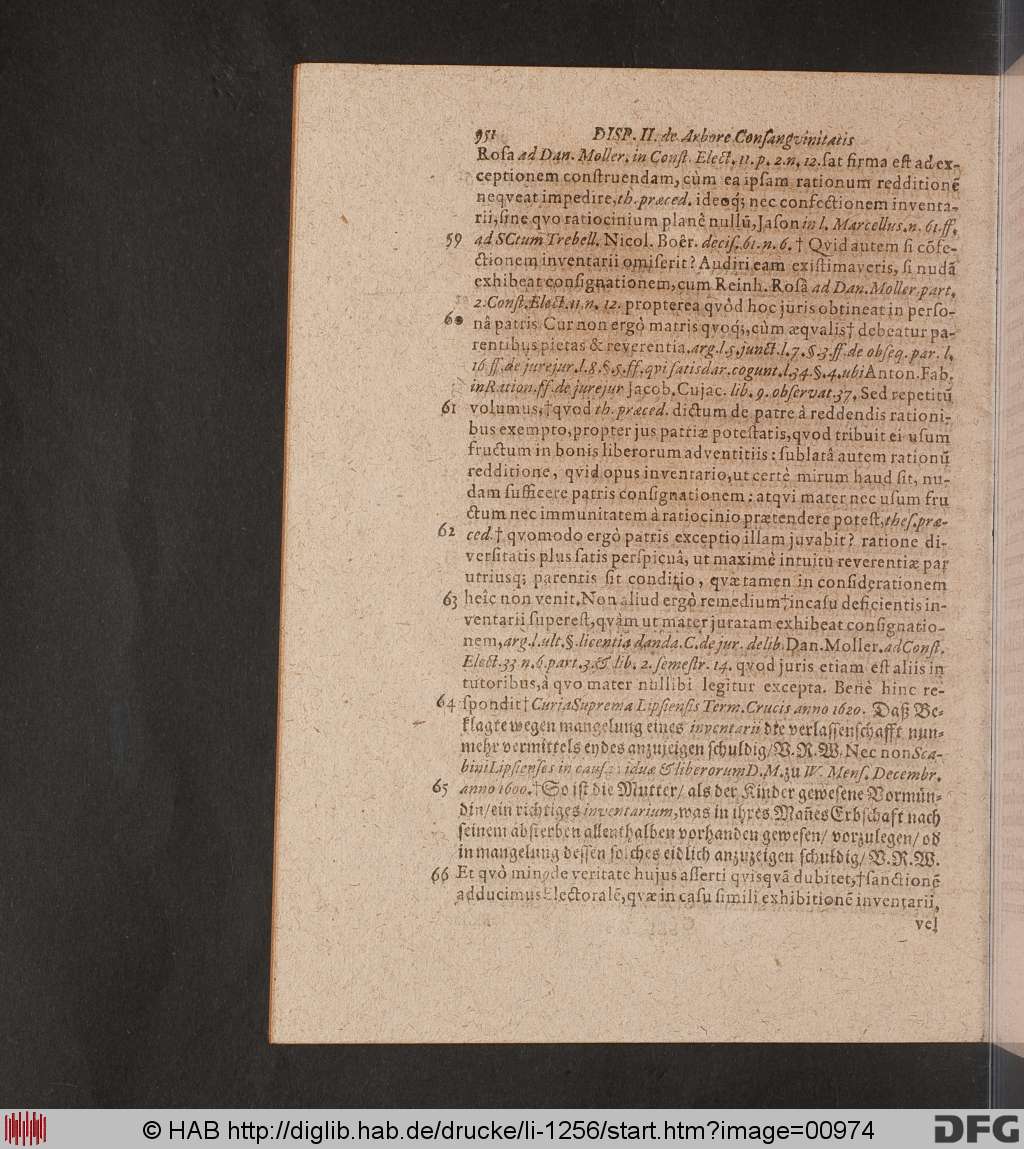 951 DISP. II. de Arbore Consangvinitatis
Rosa ad Dan. Moller. in Const. Elect. 11. p. 2. n. 12. sat firma est ad ex-
ceptionem construendam, cùm ea ipsam rationum redditionẽ
neqveat impedire, th. præced. ideoq; nec confectionem inventa-
rii, sine qvo ratiocinium planè nullũ, Jason in l. Marcellus. n. 61. ff.
59 ad SCtum Trebell. Nicol. Boêr. decis. 61. n. 6. † Qvid autem si cõfe-
ctionem inventarii omiserit? Audiri eam existimaveris, si nudã
exhibeat consignationem, cum Reinh. Rosâ ad Dan. Moller. part.
2. Const. Elect. 11. n. 12. propterea qvòd hoc juris obtineat in perso-
60 nâ patris Cur non ergò matris qvoq;, cùm æqvalis† debeatur pa-
rentibus pietas & reverentia. arg. l. 5. junct. l. 7. §. 3. ff. de obseq. par. l.
16. ff. de jurejur. l. 8. §. 5. ff. qvi satisdar. cogunt. l. 34. §. 4. ubi Anton. Fab.
in Ration. ff. de jurejur Jacob. Cujac. lib. 9. observat. 37. Sed repetitũ
61 volumus, †qvod th. præced. dictum de patre à reddendis rationi-
bus exempto, propter jus patriæ potestatis, qvod tribuit ei usum
fructum in bonis liberorum adventitiis: sublatâ autem rationũ
redditione, qvid opus inventario, ut certè mirum haud sit, nu-
dam sufficere patris consignationem: atqvi mater nec usum fru
ctum nec immunitatem à ratiocinio prætendere potest, thes. præ-
62 ced. † qvomodo ergò patris exceptio illam juvabit? ratione di-
versitatis plus satis perspicuâ, ut maximè intuitu reverentiæ par
utriusq; parentis sit conditio, qvæ tamen in considerationem
63 heîc non venit. Non aliud ergò remedium †in casu deficientis in-
ventarii superest, qvàm ut mater juratam exhibeat consignatio-
nem, arg. l. ult. §. licentiâ danda. C. de jur. delib. Dan. Moller. ad Const.
Elect. 33 n. 6. part. 3. & lib. 2. semestr. 14. qvod juris etiam est aliis in
tutoribus, à qvo mater nullibi legitur excepta. Benè hinc re-
64 spondit† Curia Suprema Lipsiensis Term. Crucis anno 1620. Daß Be-
klagte wegen mangelung eines inventarii die verlassenschafft nun-
mehr vermittels eydes anzuzeigen schuldig/ V. R. W. Nec non Sca-
bini Lipsienses in causa viduæ & liberorum D. M. zu W. Mens. Decembr.
65 anno 1600. †So ist die Mutter/ als der Kinder gewesene Vormün-
din/ ein richtiges inventarium, was in ihres Mañes Erbschaft nach
seinem absterben allenthalben vorhanden gewesen/ vorzulegen/ od
in mangelung dessen solches eidlich anzuzeigen schuldig/ V. R. W.
66 Et qvò minº de veritate hujus asserti qvisqvã dubitet, †sanctionẽ
adducimus Electoralẽ, qvæ in casu simili exhibitionẽ inventarii,
vel
© HAB http://diglib.hab.de/drucke/li-1256/start.htm?image=00974
DFG